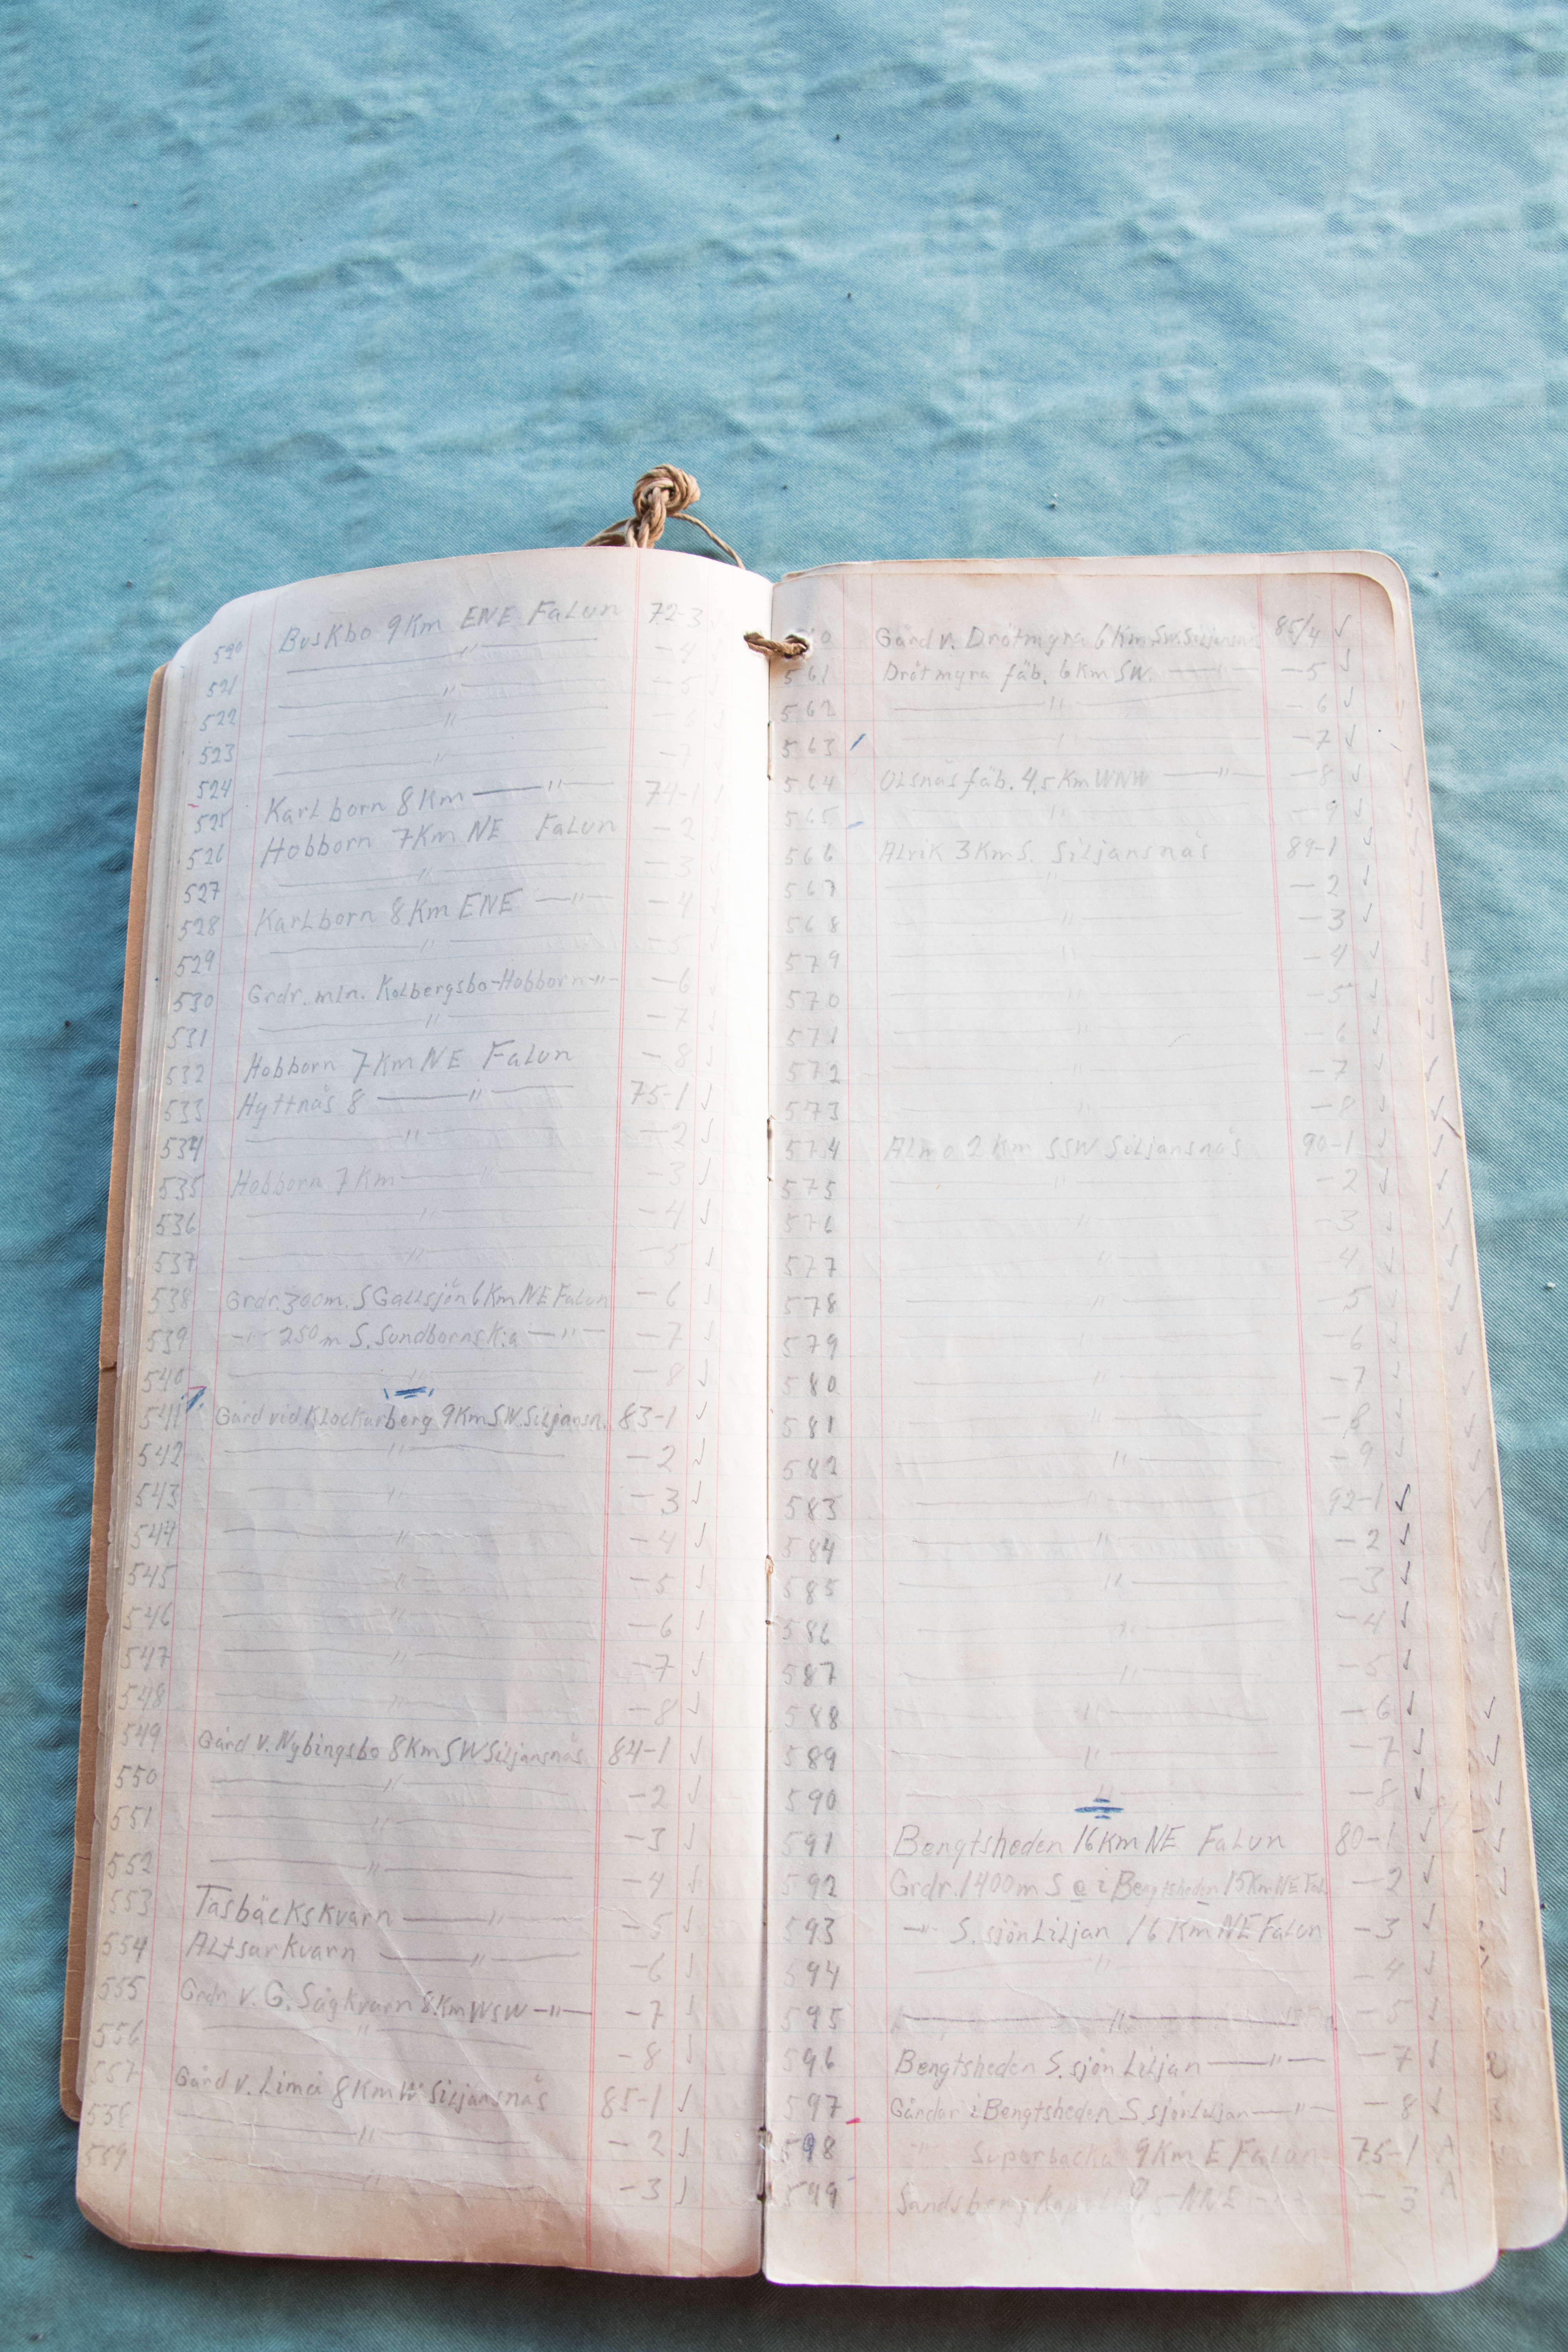 520 Buskbo 9Km ENE Falun 72-3
521 —"— -4
522 —"— -5
523 —"— -6
524 —"— -7
525 Karlborn 8Km —"— 74-1
526 Hobborn 7Km NE Falun -2
527 —"— -3
528 Karlborn 8Km ENE —"— -4
529 —"— -5
530 Grdr. mln. Kolbergsbo-Hobborn —"— -6
531 —"— -7
532 Hobborn 7Km NE Falun -8
533 Hyttnäs 8 —"— 75-1 ✓
534 —"— -2 ✓
535 Hobborn 7Km —"— -3 ✓
536 —"— -4 ✓
537 —"— -5 ✓
538 Grdr. 300m. S Gallsjön 6Km NE Falun -6 ✓
539 —"— 250m S. Sundborns K:a —"— -7 ✓
540 —"— -8 ✓
541 Gård vid Klockarberg 9Km SW. Siljansn. 83-1 ✓
542 —"— -2 ✓
543 —"— -3 ✓
544 —"— -4 ✓
545 —"— -5 ✓
546 —"— -6 ✓
547 —"— -7 ✓
548 —"— -8 ✓
549 Gård v. Nybingsbo 8Km SW Siljansnäs 84-1 ✓
550 —"— -2 ✓
551 —"— -3 ✓
552 —"— -4 ✓
553 Tasbäckskvarn —"— -5 ✓
554 Altsarkvarn —"— -6 ✓
555 Grdr v. G. Sågkvarn 8Km WSW —"— -7 ✓
556 —"— -8 ✓
557 Gård v. Limå 8Km W Siljansnäs 85-1 ✓
558 —"— -2 ✓
559 —"— -3 ✓
0 Gård v. Drötmyra 6Km SW. Siljansnäs 85/4 ✓
561 Drötmyra fäb. 6Km SW. —"— -5 ✓
562 —"— -6 ✓
563 —"— -7 ✓
564 Olsnäs fäb. 4,5Km WNW —"— -8 ✓
565 —"— -9 ✓
566 Alvik 3Km S. Siljansnäs 89-1 ✓
567 " -2 ✓
568 " -3 ✓
579 " -4 ✓
570 " -5 ✓
571 " -6 ✓
572 " -7 ✓
573 " -8 ✓
574 Almo 2Km SSW Siljansnäs 90-1 ✓
575 —"— -2 ✓
576 —"— -3 ✓
577 —"— -4 ✓
578 —"— -5 ✓
579 —"— -6 ✓
580 —"— -7 ✓
581 —"— -8 ✓
582 —"— -9 ✓
583 —"— 92-1 ✓
584 —"— -2 ✓
585 —"— -3 ✓
586 —"— -4 ✓
587 —"— -5 ✓
588 —"— -6 ✓
589 —"— -7 ✓
590 —"— -8 ✓
591 Bengtsheden 16Km NE Falun 80-1 ✓
592 Grdr. 1400m S e i Bengtsheden 15Km NE Fal. -2 ✓
593 —"— S. sjön Liljan 16 Km NE Falun -3 ✓
594 —"— -4 ✓
595 —"— -5 ✓
596 Bengtsheden S. sjön Liljan —"— -7 ✓
597 Gårdar i Bengtsheden S sjön Liljan —"— -8 ✓
598 9Km E Falun 75-1 A
599 Sandsberg NNE -3 A